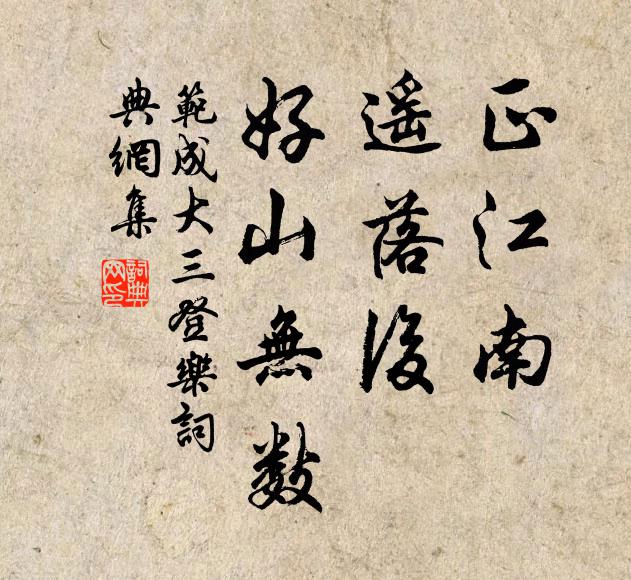 正江南
遥落後
好山無數
範成大三登樂詞
典網集
詞典网印